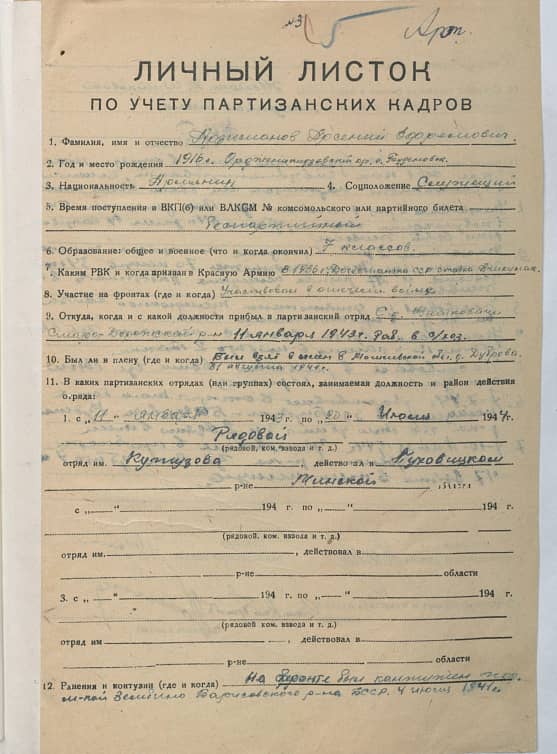 № 3
ЛИЧНЫЙ ЛИСТОК
ПО УЧЕТУ ПАРТИЗАНСКИХ КАДРОВ
1. Фамилия, имя и отчество Арсений
2. Год и место рождения 1916 г. Орджоникидзевский
3. Национальность Армянин 4. Соцположение Служащий
5. Время поступления в ВКП(б) или ВЛКСМ № комсомольского или партийного билета
Беспартийный
6. Образование: общее и военное (что и когда окончил) 7 классов.
7. Каким РВК и когда призван в Красную Армию В 1936 г. ССР
8. Участие на фронтах (где и когда) Участвовал в войне
9. Откуда, когда и с какой должности прибыл в партизанский отряд С д.
р-н 11 января 1943 г. раб. в с/хоз.
10. Был ли в плену (где и когда) Был взят в плен в обл. д. Дуброва
11. В каких партизанских отрядах (или группах) состоял, занимаемая должность и район действия
отряда:
1. с „ 11 “ января 1943 г. по „ 20 “ Июля 1944 г.
Рядовой
(рядовой, ком. взвода и т. д.)
отряд им. Кутузова , действовал в Пуховицком
р-не Минской
с „ “ 194 г. по „ “ 194 г.
(рядовой, ком. взвода и т. д.)
отряд им. , действовал в
р-не области
3. с „ “ 194 г. по „ “ 194 г.
(рядовой, ком. взвода и т. д.)
отряд им. , действовал в
р-не области
12. Ранения и контузии (где и когда) На фронте был контужен под
Зембино Барисовского р-на БССР. 4 июля 1941 г.